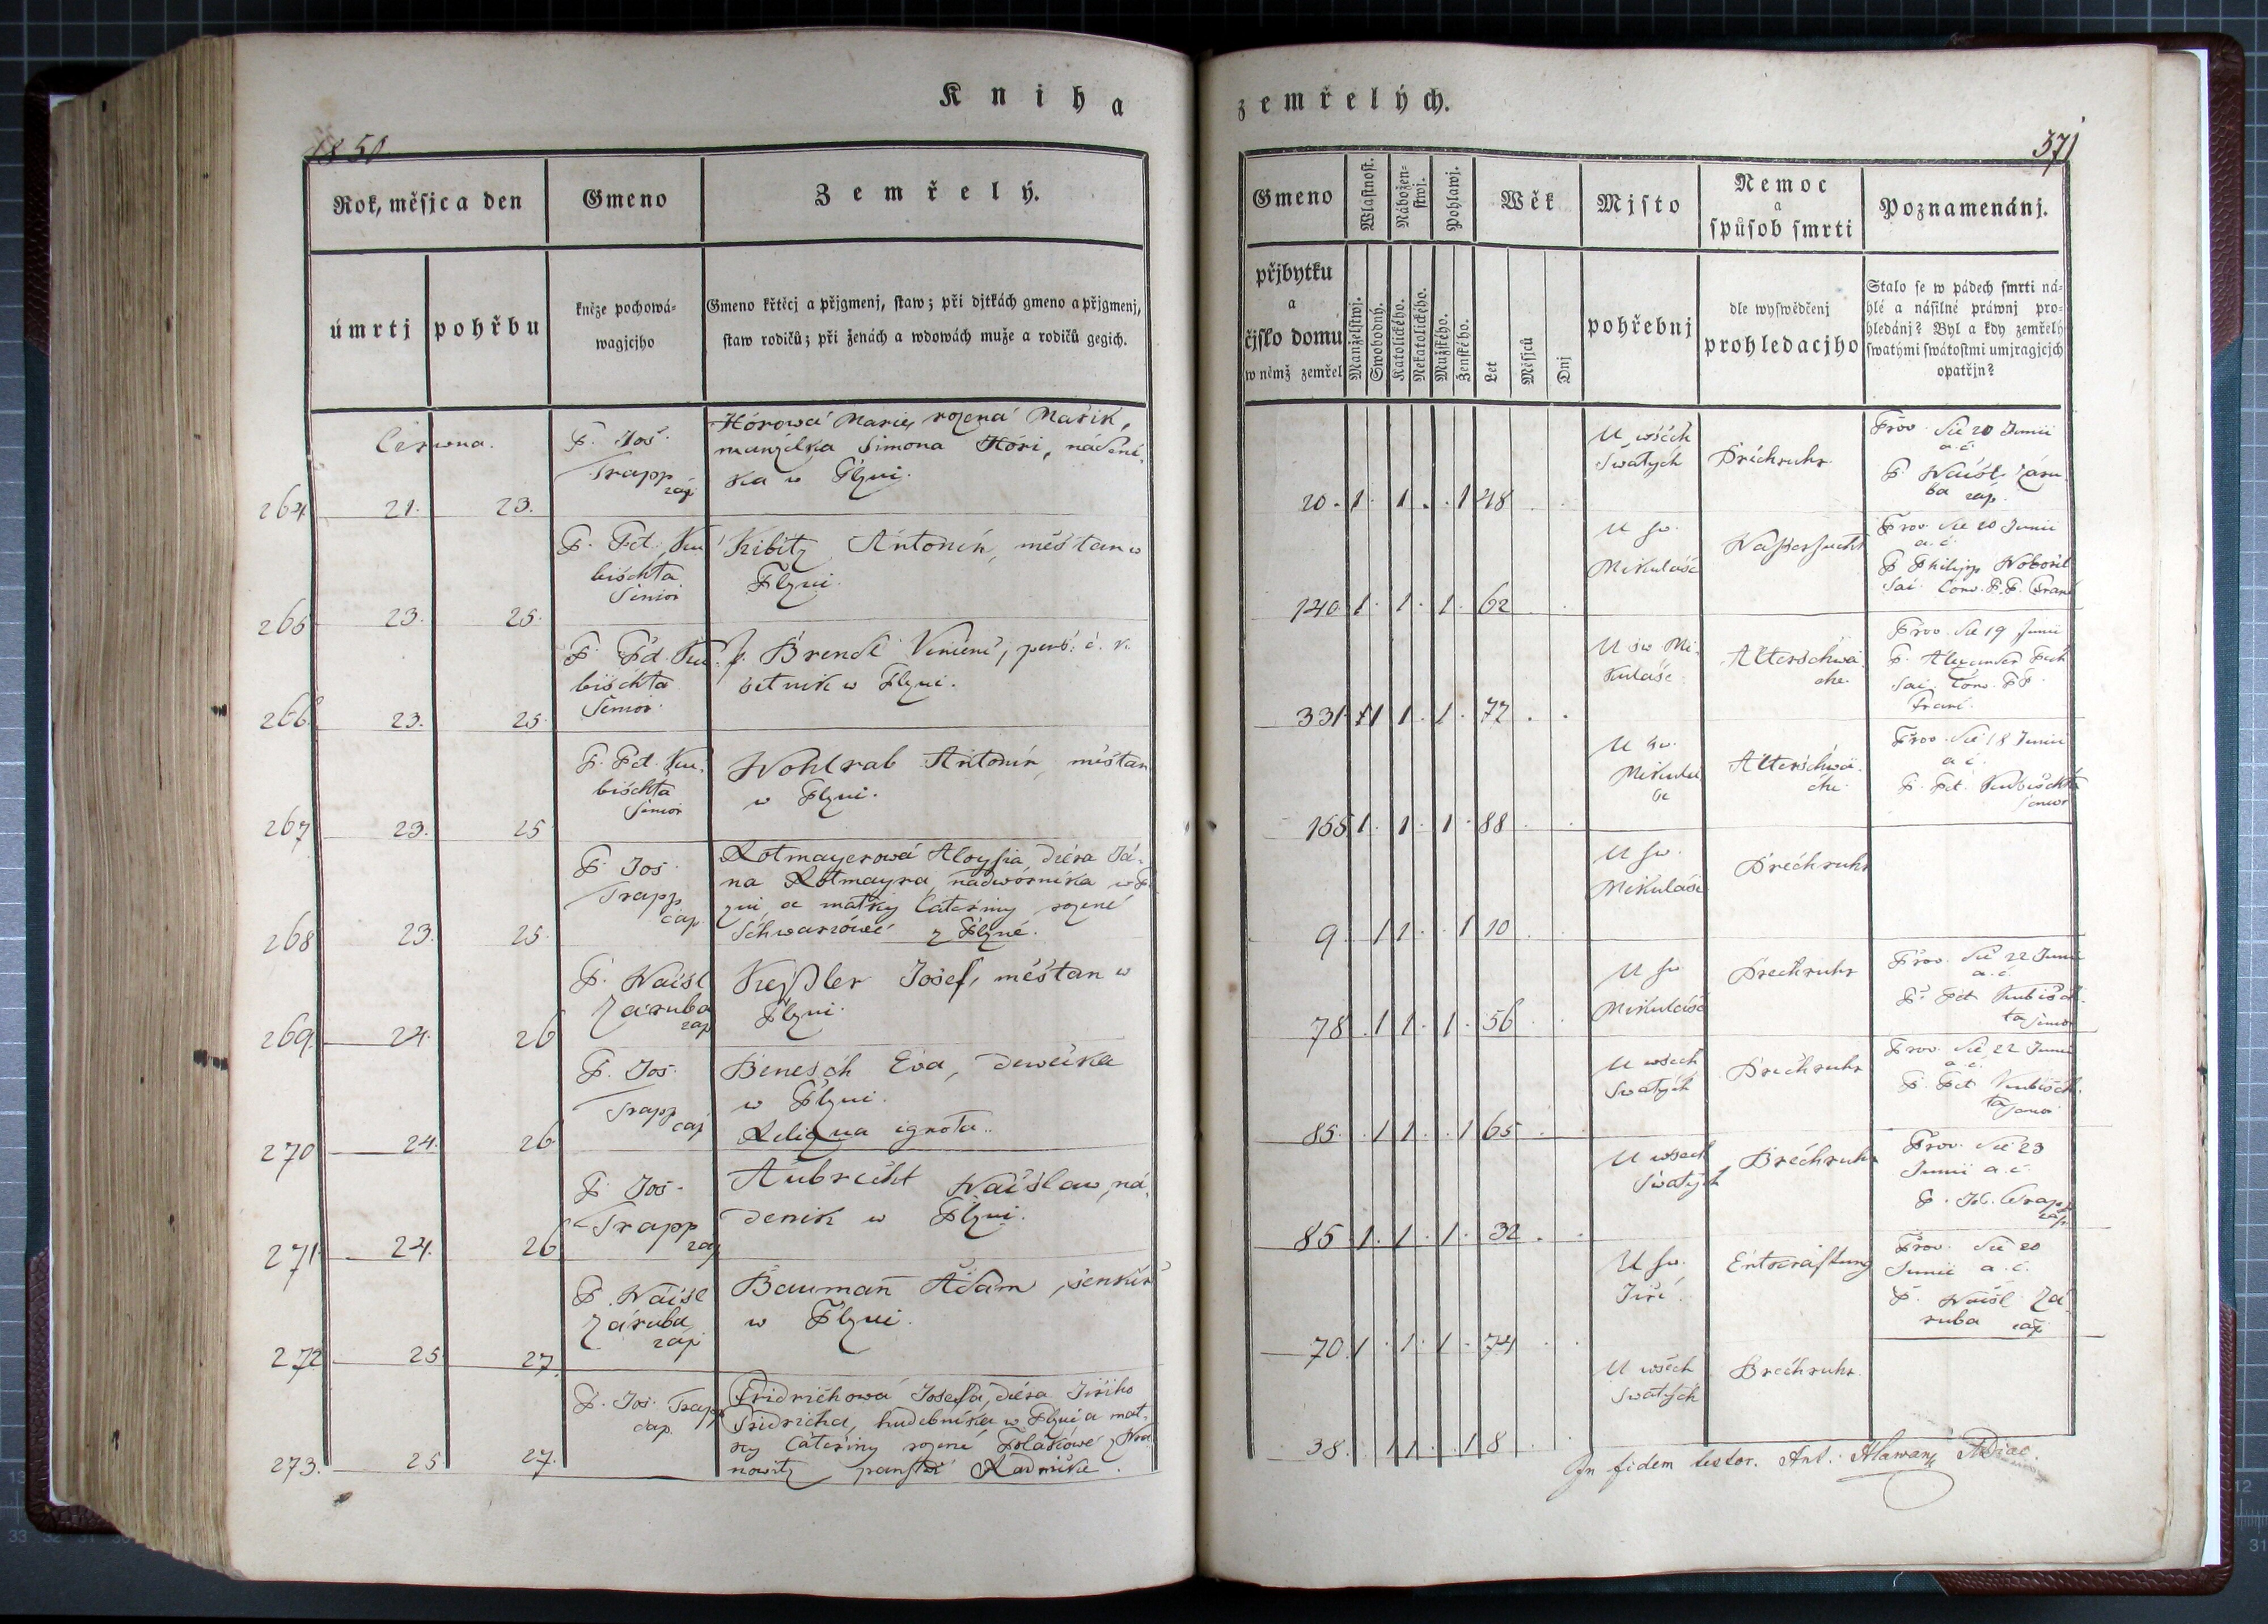 Kniha zemřelých.
1850
371
Rok, měsjc a den
Gmeno
Zemřelý.
Gmeno
Wlastnost.
Nábožen-
stwj.
Pohlawj.
Wěk
Mjsto
Nemoc
a
spůsob smrti
Poznamenánj.
úmrtj
pohřbu
kněze pochowá-
wagjcjho
Gmeno křtěcj a přjgmenj, staw; při djtkách gmeno a přjgmenj,
staw rodičů; při ženách a wdowách muže a rodičů gegich.
přjbytku
a
čjslo domu
w němž zemřel
Manželstwj.
Swobodný.
Katolického.
Nekatolického.
Mužského.
Ženského.
Let
Měsjců
Dnj
pohřebnj
dle wyswědčenj
prohledacjho
Stalo se w pádech smrti ná-
hlé a násilné práwnj pro-
hledánj? Byl a kdy zemřelý
swatými swátostmi umjragjcjch
opatřjn?
Června.
264 21. 23.
P. Jos.
Trapp
cap
Hórowá Marie, rozená Mařik,
manželka Simona Hóri, nádení-
ka w Plzni.
20. 1. 1. . 1 48
U wšech
Swatých
Brěchruhr
Prov. die 20 Junii
a. c.
P. Wácsl. Záru-
ba cap.
265 23. 25.
P. Fct. Ku-
bischta
Senior
Kibitz Antonín, měštan w
Plzni.
140 1. 1. 1. 62
U sw.
Mikuláše
Wassersucht
Prov. die 20 Junii
a. c.
P. Philipp Woboril
Sac. Conv. P.P. Franc
266 23. 25.
P. Fct. Ku-
bischta
Senior.
p. Brendl Vincenc, penz. c. k.
w Plzni.
331 1 1. 1. 72
U sw. Mi-
kuláše
Altersschwä-
che.
Prov. die 19 Junii
P. Alexander
Sac. Conv. P.P.
Franc.
267 23. 25
P. Fct. Ku-
bischta
Senior
Wohlrab Antonín, měštan
w Plzni.
155 1. 1. 1. 88
U sw.
Mikulá
še
Altersschwä-
che.
Prov. die 18 Junii
a. c.
P. Fct. Kubischta
Senior
268 23. 25.
P. Jos.
Trapp
cap.
Rotmayerowá Aloysia, dcéra Já-
na Rotmayra, nádworníka w Pl-
zni a matky Cateřiny rozené
Schwarzówé z Plzně.
9. 1 1. . 1 10
U sw.
Mikuláše
Brechruhr
269. 24. 26
P. Wácsl
Záruba
cap
Keßler Josef, měštan w
Plzni.
78. 1 1. 1. 56
U sw
Mikuláše
Brechruhr
Prov. die 22 Junii
a. c.
P. Fct Kubisch-
ta Senior
270 24. 26
P. Jos.
Trapp
cap
Benesch Eva, dewečka
w Plzni.
Reliqua ignota.
85. . 1 1. . 1 65
U wšech
Swatých
Brechruhr
Prov. die 22 Junii
a. c.
P. Fct Kubisch-
ta Senior
271 24. 26
P. Jos.
Trapp
cap
Aubrecht Wácslaw, ná-
deník w Plzni.
85 1. 1. 1. 32
U wšech
Swatých
Brechruhr
Prov. die 23
Junii a. c.
P. Jos. Trapp
cap
272 25 27.
P. Wácsl
Záruba
cap
Bauman̄ Adam, šenkíř
w Plzni.
70 1. 1. 1. 74
U sw.
Jiří.
Entkräftung
Prov. die 20
Junii a. c.
P. Wácsl. Zá-
ruba cap.
273. 25 27.
P. Jos. Trapp
cap.
Fridrichowá Josefa, dcéra Jiřího
Fridricha, hudebníka w Plzni a mat-
ky Cateřiny rozené Polákowé z
panství Radnice.
38. 1 1. . 1 8
U wšech
Swatých
Brechruhr.
In fidem testor. Ant. Hlawan